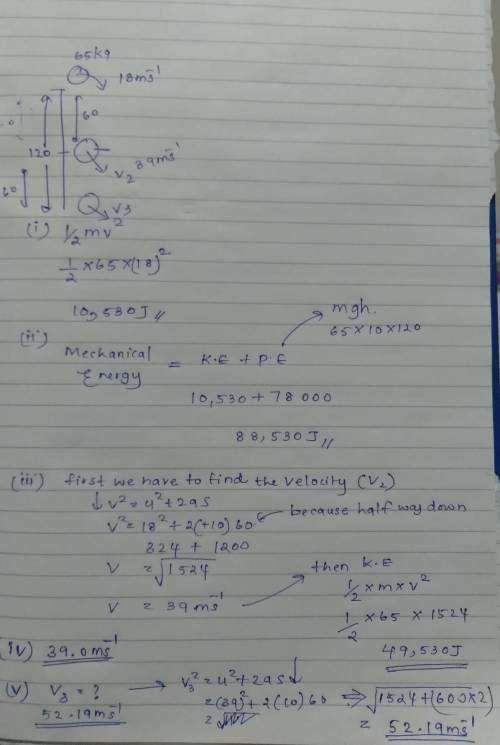 65kg
18ms⁻¹
60
120
60
39ms⁻¹
V₂
V₃
(i) 1/2 mv²
1/2 × 65 × (18)²
10,530J //
mgh.
65 × 10 × 120
(ii)
Mechanical Energy = K.E + P.E
10,530 + 78 000
88,530J //
(iii) first we have to find the velocity (V₂)
↓ V² = u² + 2as
V² = 18² + 2(+10) 60 because half way down
324 + 1200
V = √1524
V = 39ms⁻¹
then K.E
1/2 × m × v²
1/2 × 65 × 1524
49,530J
(iv) 39.0ms⁻¹
(v) V₃ = ? → V₃² = u² + 2as ↓
52.19ms⁻¹
= (39)² + 2(10) 60 ⇒ √1524 + (600×2)
= 52.19ms⁻¹